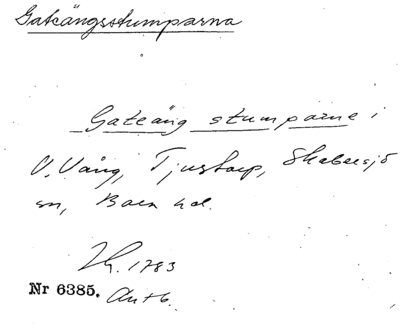 Gateängsstumparna
Gateäng stumparne i
V. Vång, Tjustorp, Skabersjö
sn, Bara hd.
1783
Nr 6385.